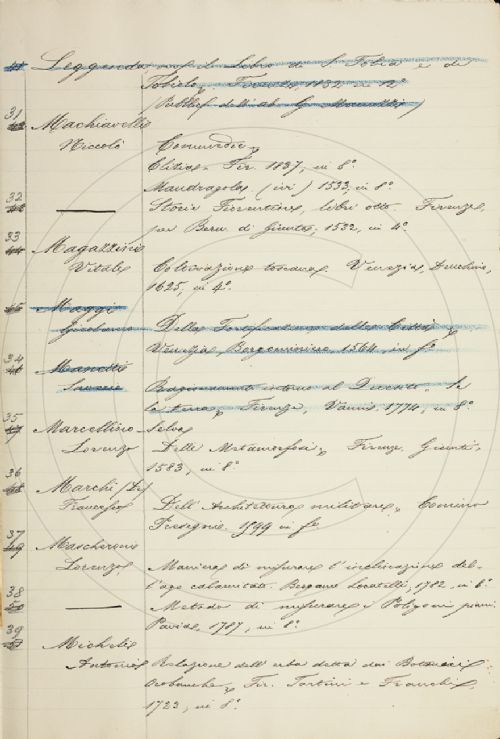 Leggenda, nos il Libro di S. Tobia e di
Tobiolo, Firenze, 1832, in 12°
31
Machiavelli
Niccolò Commedie,
Clitia. Fir. 1837, in 8°
Mandragola. (ivi) 1533, in 8°
32
Storie Fiorentine, libri otto. Firenze,
per Bern. di Giunta, 1532, in 4°
33
Magazzini
Vitale Coltivazione toscana. Venezia, Deuchino,
1625, in 4°
Maggi
Girolamo Della Fortificazione delle Città,
Venezia, Borgominiero, 1564, in f°
34
Manetti
Saverio Ragionamento intorno al Decreto. Se
la terra, Firenze, Vanni. 1774, in 8°
35
Marcellino Selva
Lorenzo Delle Metamorfosi, Firenze, Giunti,
1583, in 8°
36
Marchi (De)
Francesco Dell' Architettura militare, Comino
1599 in f°
37
Mascheroni
Lorenzo, Maniera di misurare l'inclinazione del-
l'ago calamitato. Bergamo Locatelli, 1782, in 8°
38
Metodo di misurare i Poligoni piani
Pavia, 1787, in 8°
39
Micheli
Antonio Relazione dell'erba detta dai Botanici
Orobanche, Fir. Tartini e Franchi,
1723, in 8°